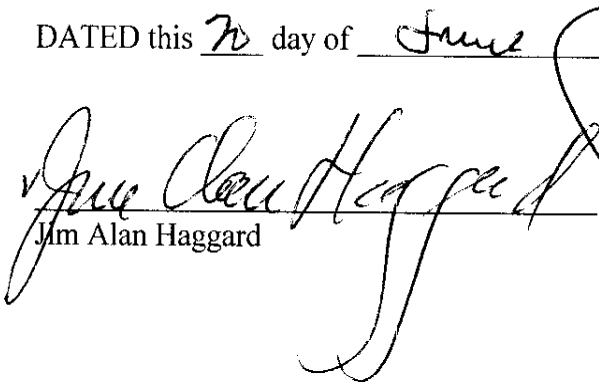 DATED this 20 day of June
Jim Alan Haggard
Jim Alan Haggard